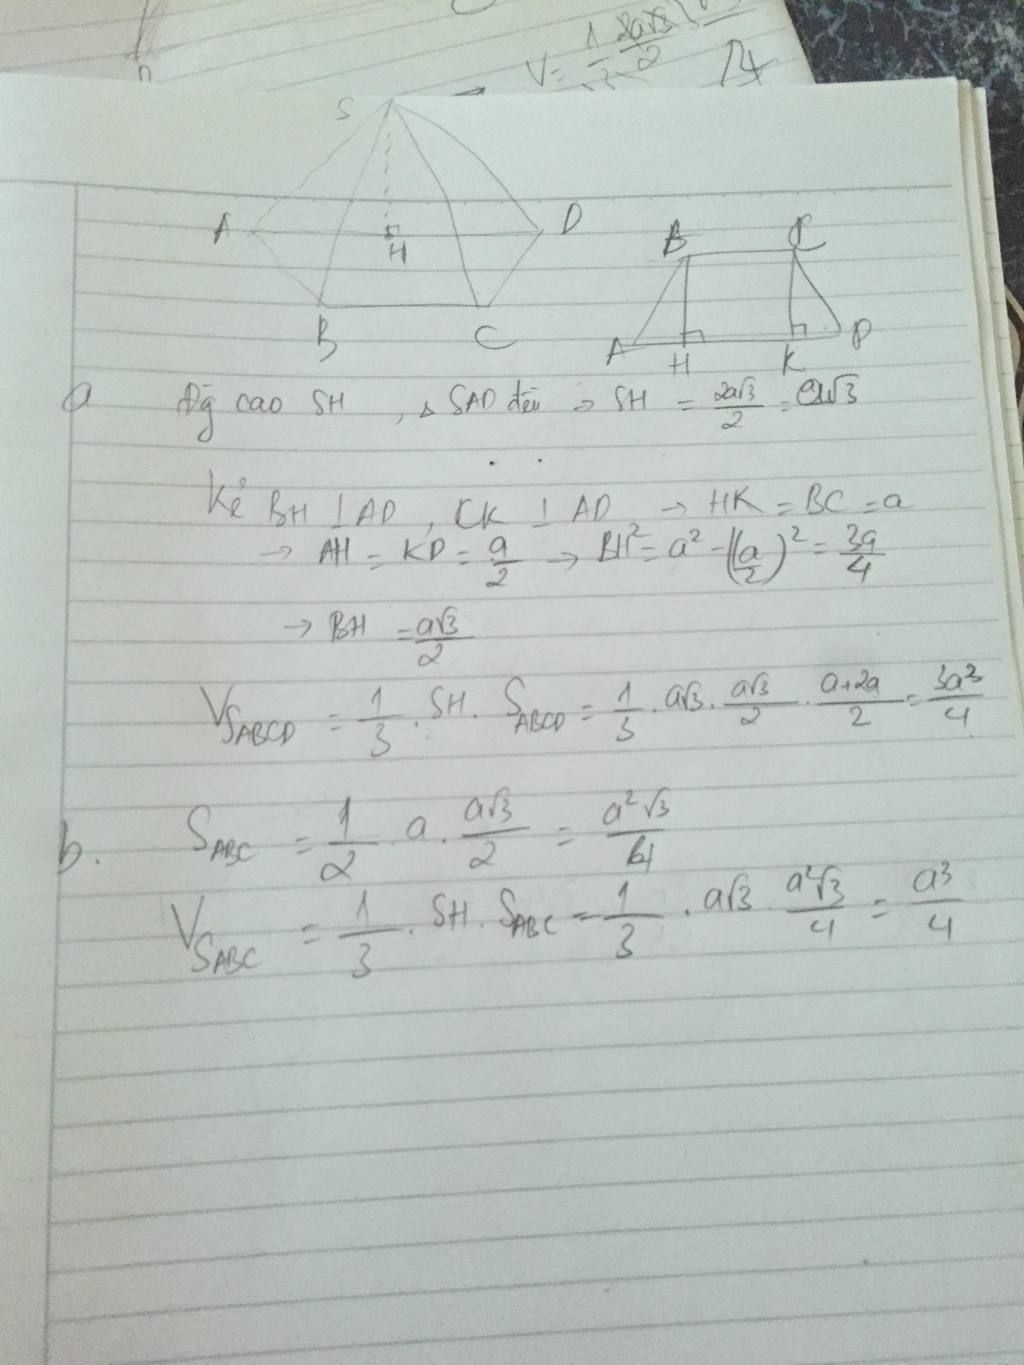 V = 1/3 2a√3/2
S
A H D
B C
B C
A H K D
a Đg cao SH , Δ SAD đều → SH = 2a√3/2 = a√3
Kẻ BH ⊥ AD , CK ⊥ AD → HK = BC = a
→ AH = KD = a/2 → BH² = a² - (a/2)² = 3a/4
→ BH = a√3/2
V_SABCD = 1/3 . SH . S_ABCD = 1/3 . a√3 . a√3/2 . a+2a/2 = 3a³/4
b. S_ABC = 1/2 a . a√3/2 = a²√3/4
V_SABC = 1/3 . SH . S_ABC = 1/3 . a√3 . a²√3/4 = a³/4